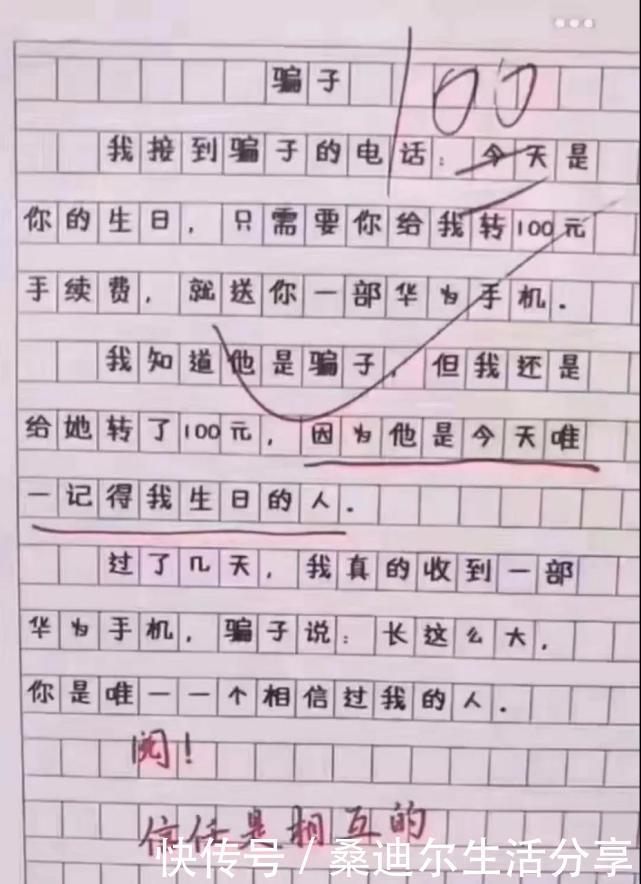 骗子
100
我接到骗子的电话：今天是
你的生日，只需要你给我转100元
手续费，就送你一部华为手机．
我知道他是骗子，但我还是
给她转了100元，因为他是今天唯
一记得我生日的人．
过了几天，我真的收到一部
华为手机，骗子说：长这么大，
你是唯一一个相信过我的人．
阅！
信任是相互的
快传号／桑迪尔生活分享